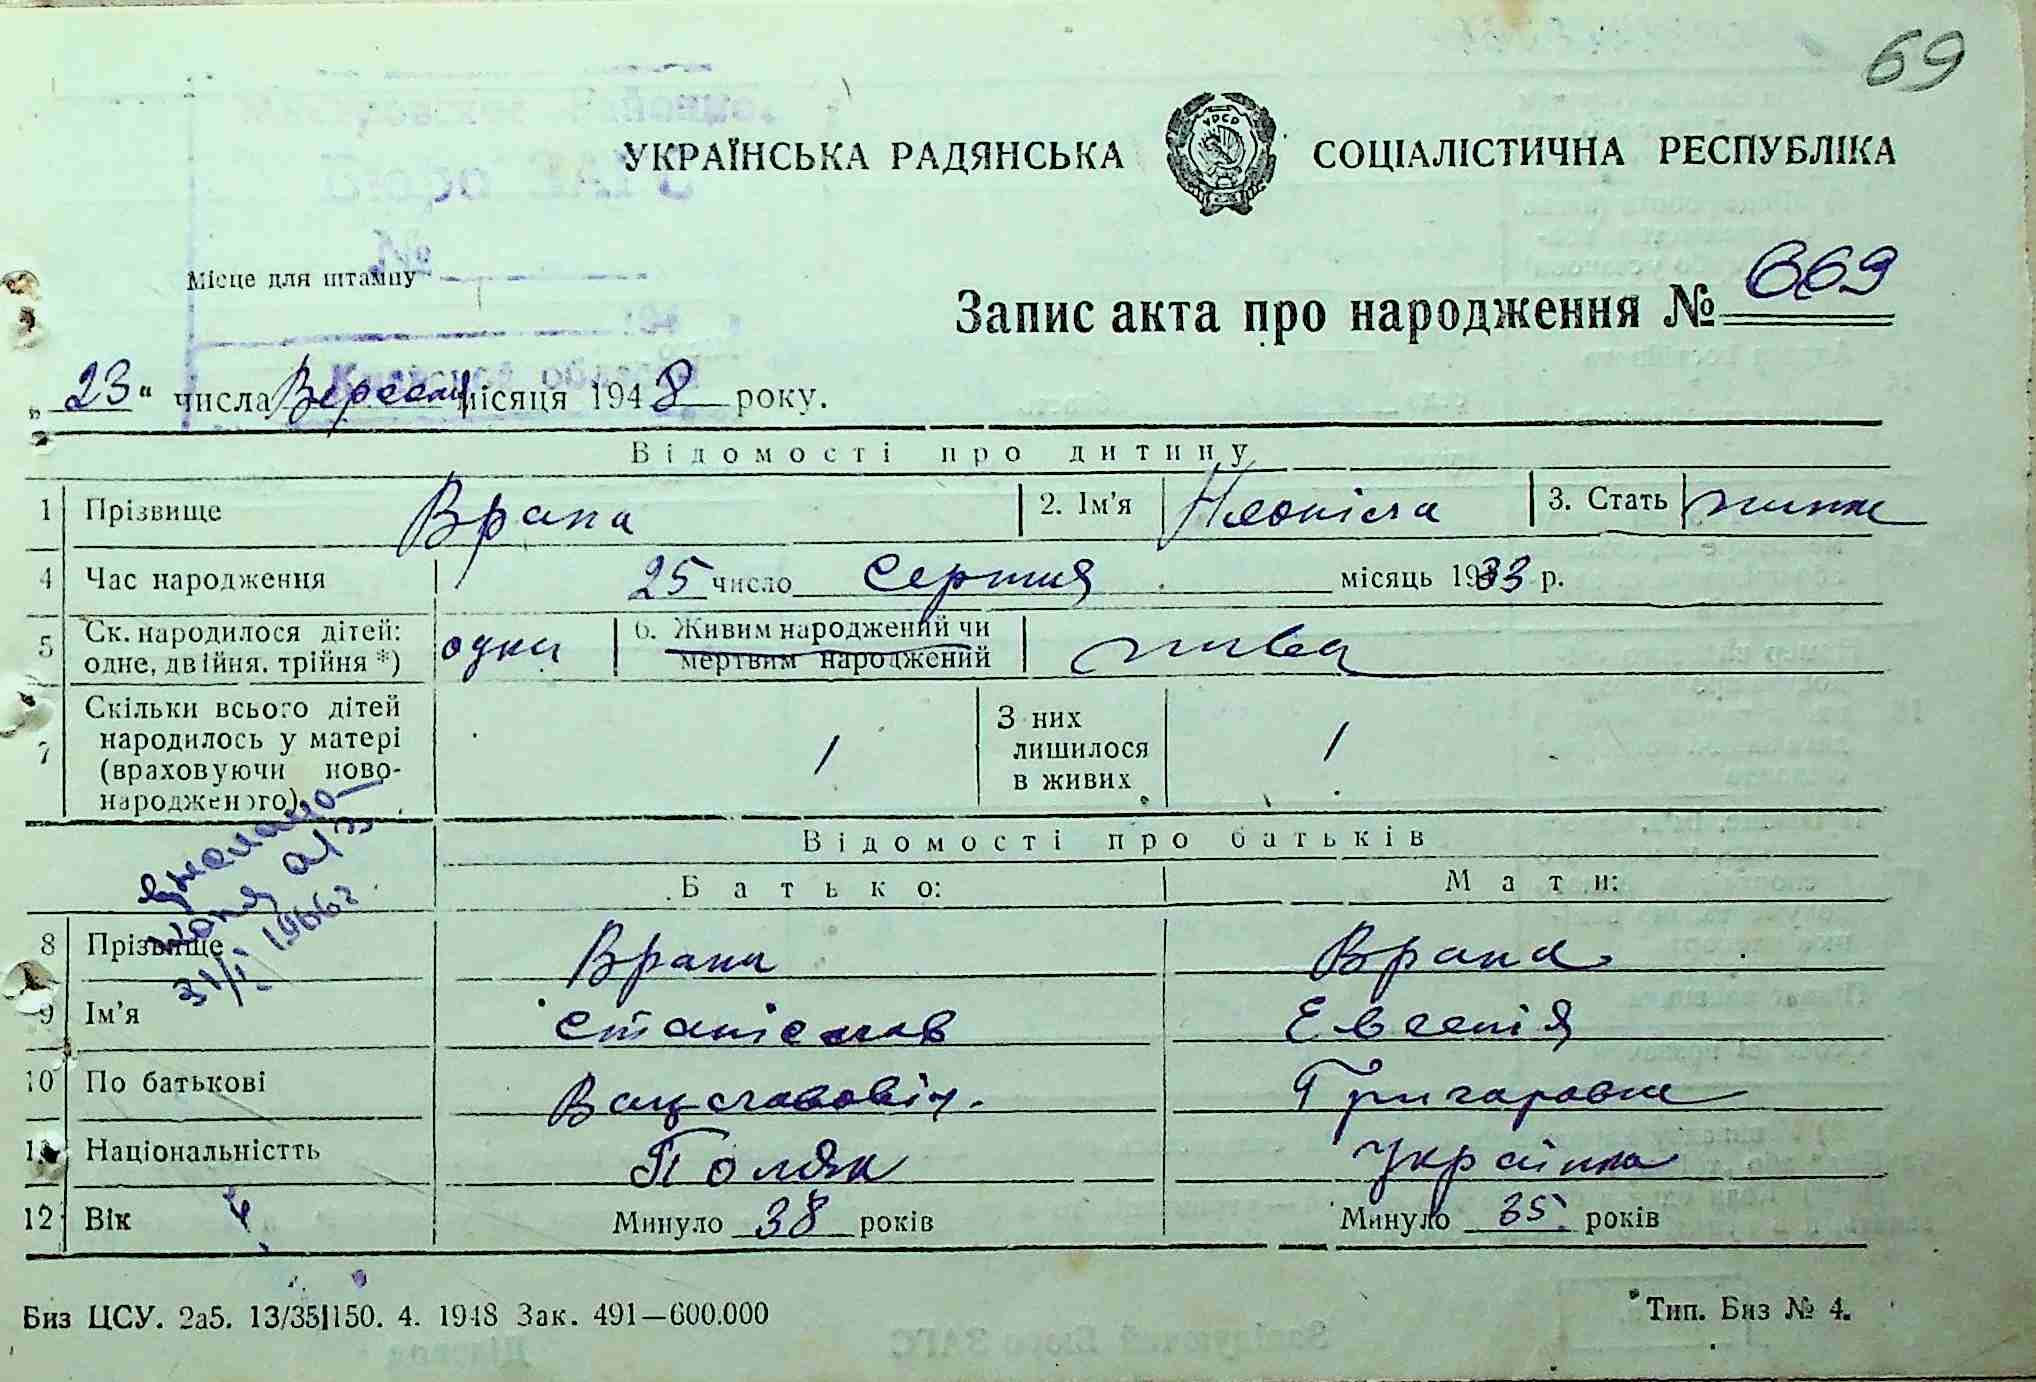 69
УКРАЇНСЬКА РАДЯНСЬКА СОЦІАЛІСТИЧНА РЕСПУБЛІКА
УРСР
Місце для штампу
№
194 г.
Киевской области
Запис акта про народження № 669
„23" числа Вересня місяця 1948 року.
Відомості про дитину
1 Прізвище Врана 2. Ім'я 3. Стать жинж
4 Час народження 25 число Серпня місяць 1933 р.
5 Ск. народилося дітей: одна 6. Живим народжений чи жива
одне, двійня. трійня *) мертвим народжений
7 Скільки всього дітей народилось у матері (враховуючи новонародженого) 1 З них лишилося в живих 1
копия а/з
31/I 1966г
Відомості про батьків
Батько: Мати:
8 Прізвище Врана Врана
9 Ім'я Станіслав Евгенія
10 По батькові Вацлавовіч. Григоровна
11 Національністть Поляк Українка
12 Вік Минуло 38 років Минуло 35 років
Биз ЦСУ. 2а5. 13/35|150. 4. 1948 Зак. 491—600.000
Тип. Биз № 4.